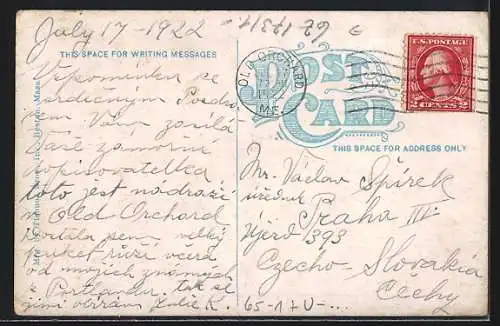 July 17 - 1922
THIS SPACE FOR WRITING MESSAGES
Vspomínku se
srdečným Pozdra-
vem Vám zasílá
Vaše zámořní
dopisovatelka
toto jest nádraží
v Old Orchard
dostala jsem velký
puket růží včera
od mojich známých
z Portlandu. tak se
jimi obírám Julie K.
OLD ORCHARD
ME.
POST CARD
THIS SPACE FOR ADDRESS ONLY
U.S. POSTAGE
2 CENTS 2
Mr. Václav Špírek
úředník
Praha III.
Újezd 1393
Czecho-Slovakia
Čechy
65-1+U-...